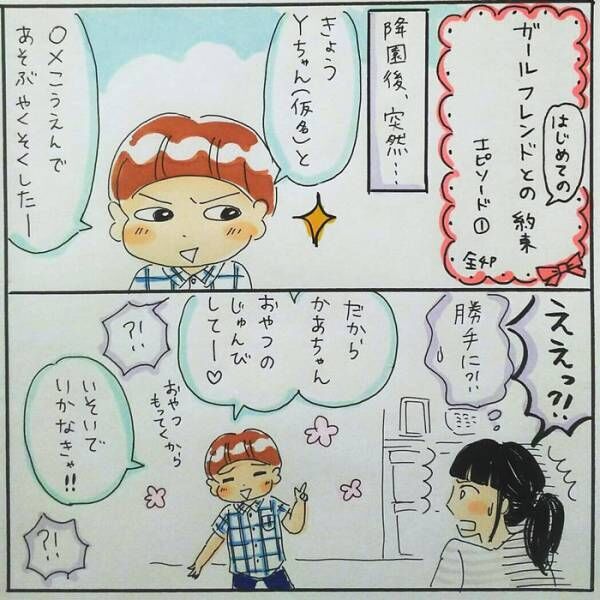 はじめての
ガールフレンドとの約束
エピソード①
全4P
降園後、突然…
きょう
Yちゃん(仮名)と
〇×こうえんで
あそぶやくそくしたー
ええっ?!
勝手に?!
だから
かあちゃん
おやつの
じゅんび
してー♡
?!
おやつ
もってくから
いそいで
いかなきゃ!!
?!